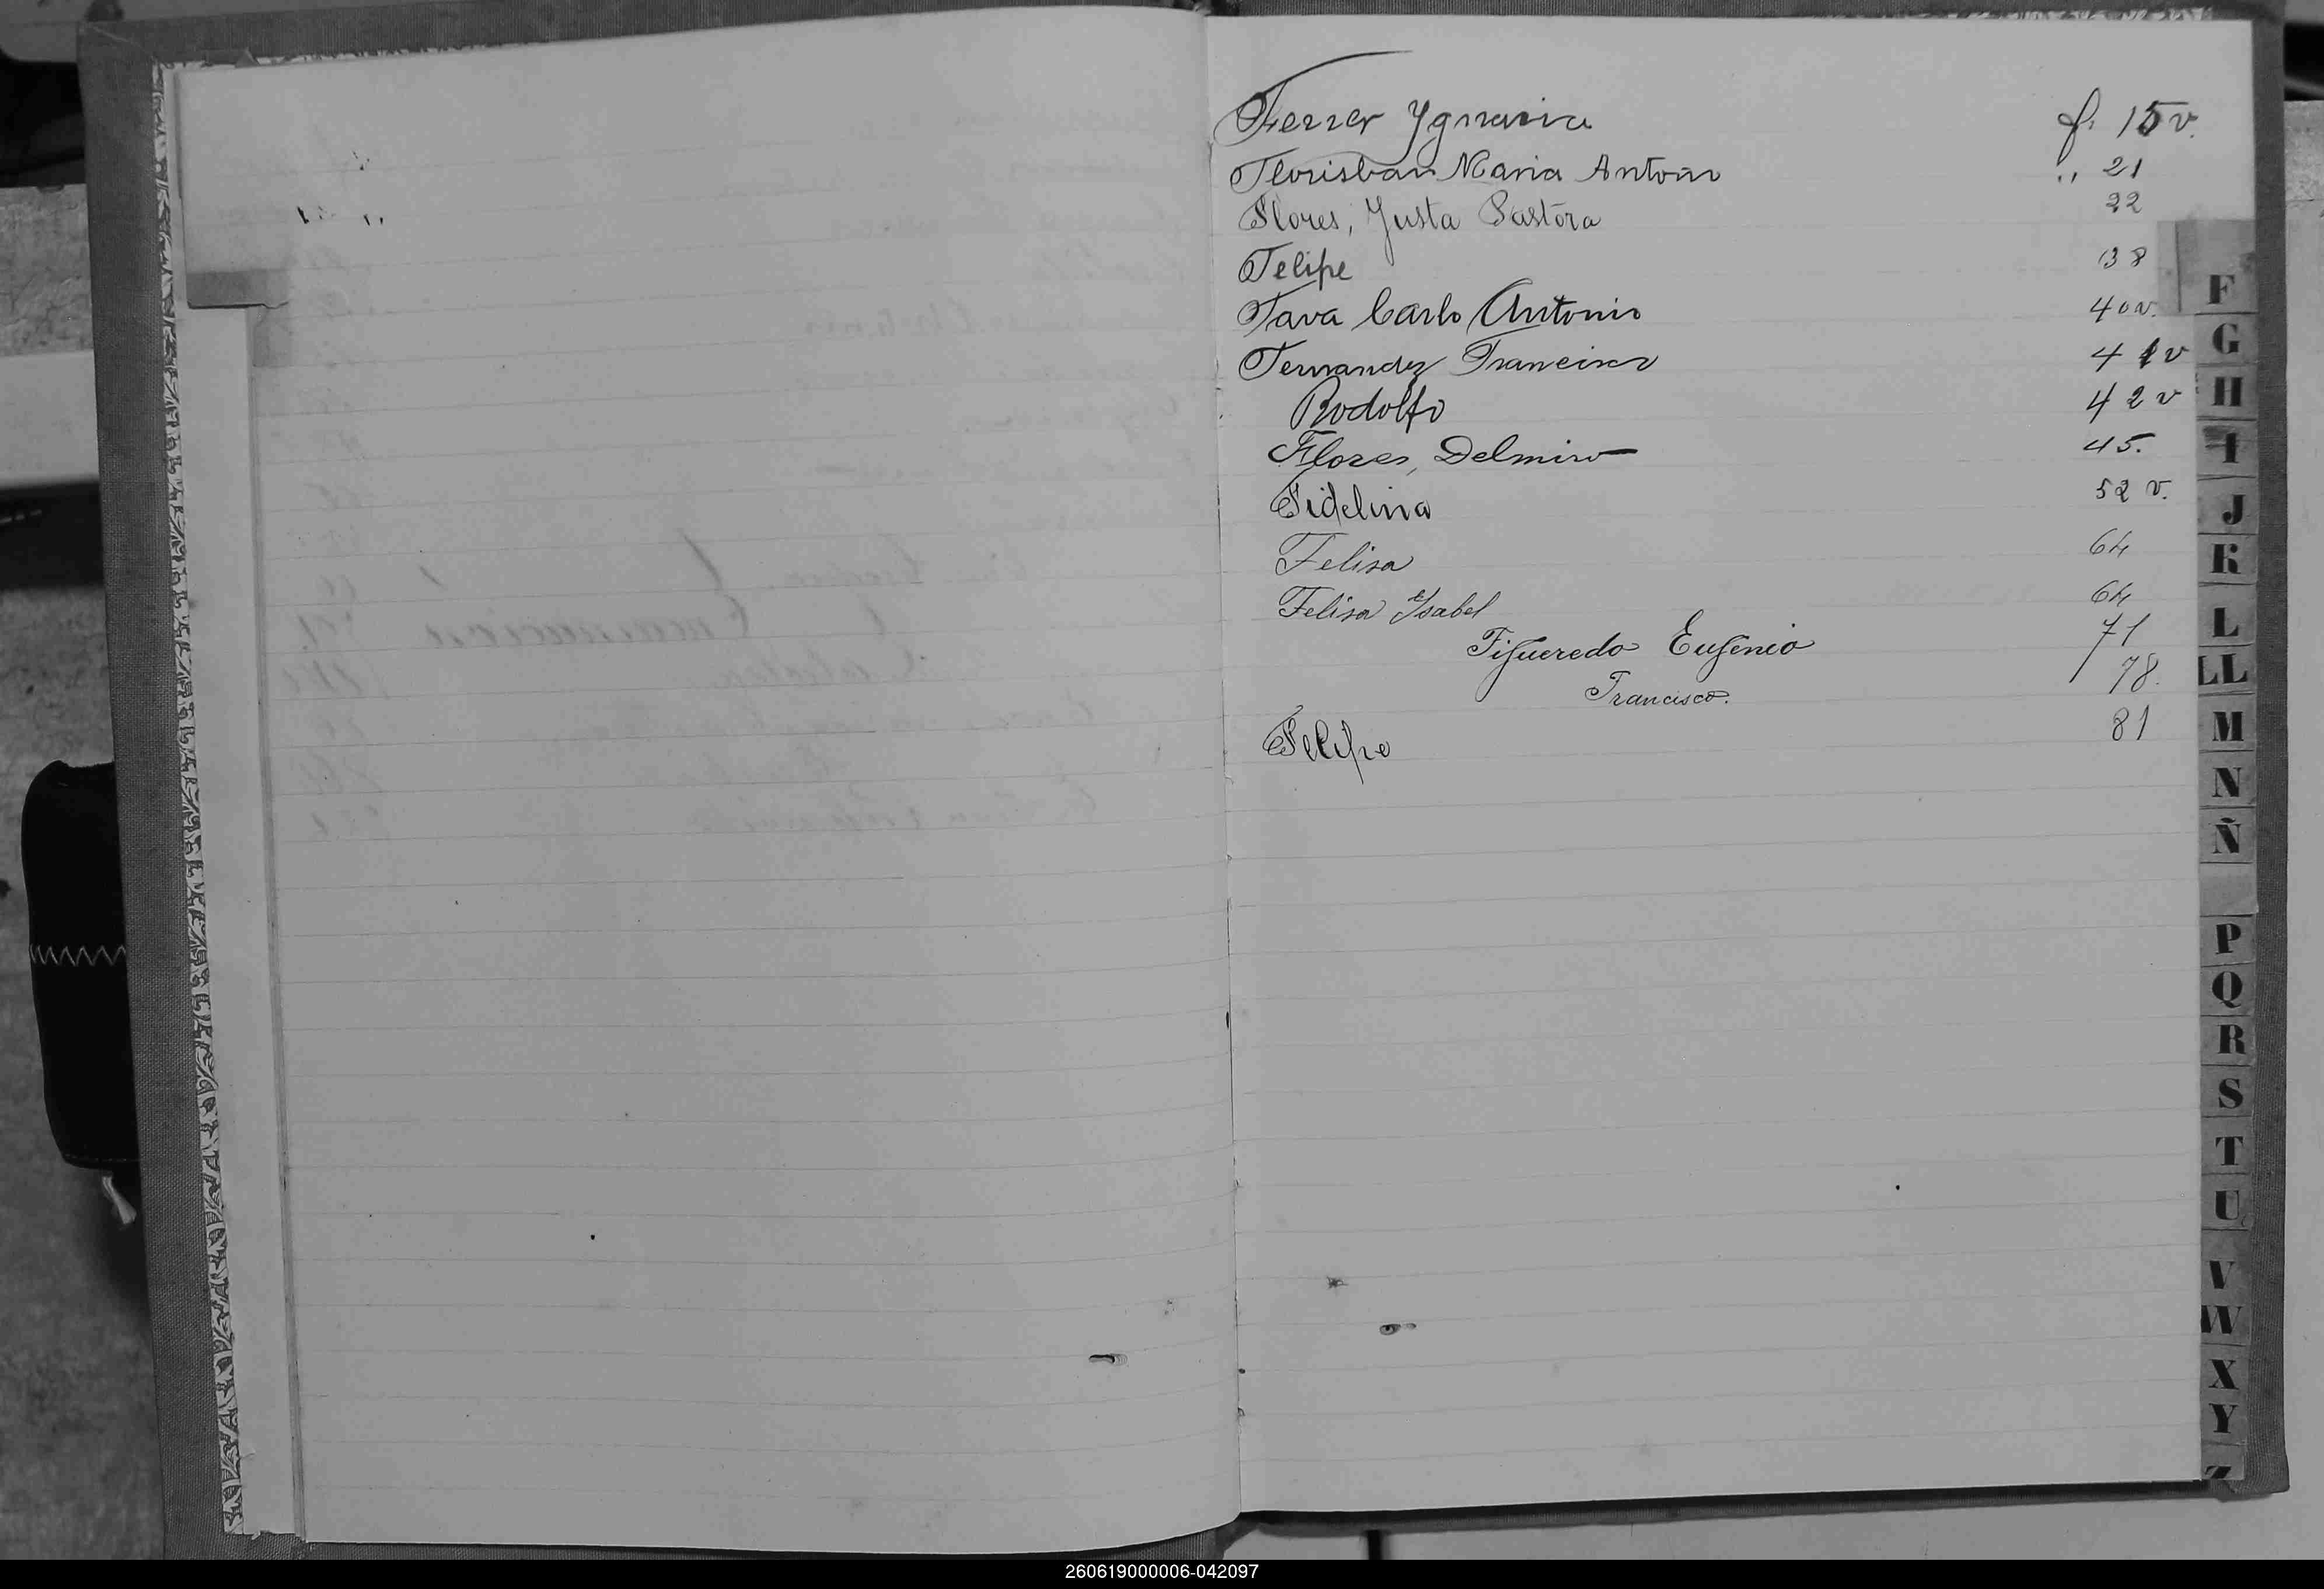 Ferrer Ygnacia f. 15 v.
Florisban Maria Antonio " 21
Flores, Justa Pastora 22
Felipe 38
Fava Carlo Antonio 40 v.
Fernandez Francisco 41 v
Rodolfo 42 v
Flores, Delmiro 45.
Fidelina 52 v.
Felisa 64
Felisa Ysabel 64
Figueredo Eugenio 71
Francisco. 78.
Felipe 81
F
G
H
I
J
K
L
LL
M
N
Ñ
P
Q
R
S
T
U
V
W
X
Y
Z
260619000006-042097